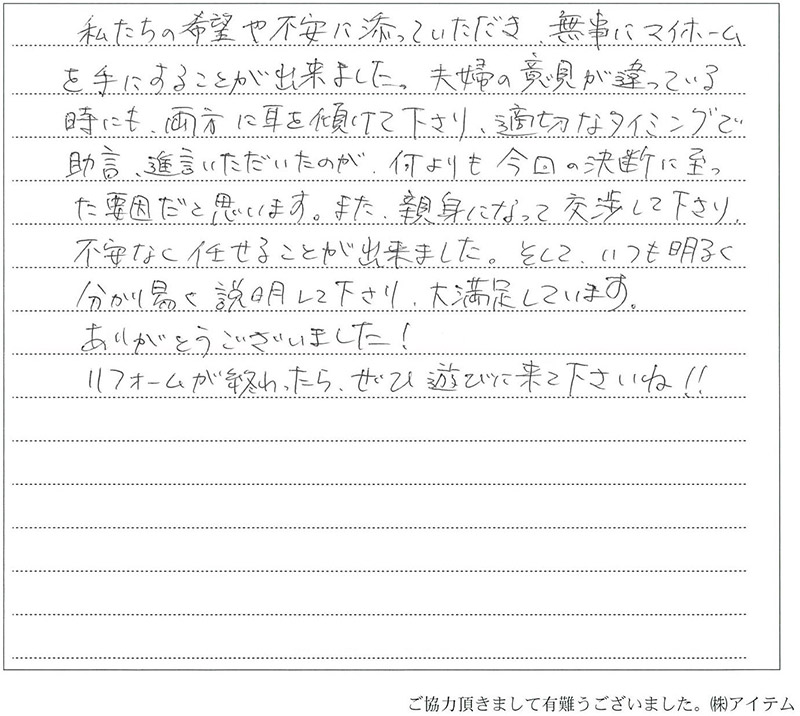 私たちの希望や不安に添っていただき、無事にマイホーム
を手にすることが出来ました。夫婦の意見が違っている
時にも、両方に耳を傾けて下さり、適切なタイミングで
助言、進言いただいたのが、何よりも今回の決断に至っ
た要因だと思います。また、親身になって交渉して下さり、
不安なく任せることが出来ました。そして、いつも明るく
分かり易く説明して下さり、大満足しています。
ありがとうございました!
リフォームが終わったら、ぜひ遊びに来て下さいね!!
ご協力頂きまして有難うございました。㈱アイテム